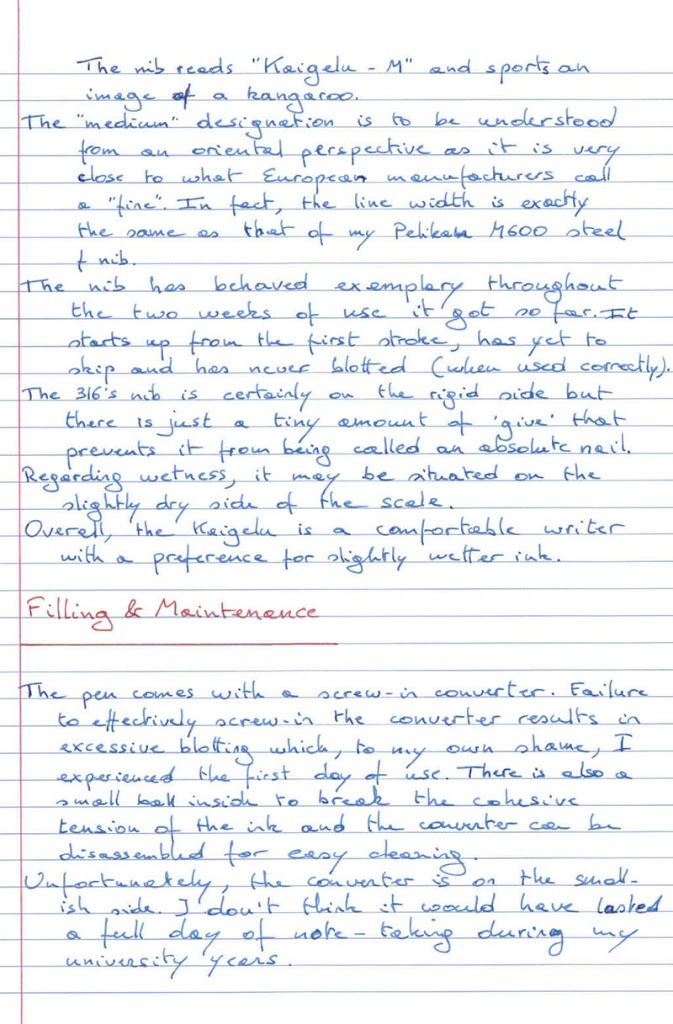 The nib reads "Kaigelu - M" and sports an
image of a kangaroo.
The "medium" designation is to be understood
from an oriental perspective as it is very
close to what European manufacturers call
a "fine". In fact, the line width is exactly
the same as that of my Pelikan M600 steel
f nib.
The nib has behaved exemplary throughout
the two weeks of use it got so far. It
starts up from the first stroke, has yet to
skip and has never blotted (when used correctly).
The 316's nib is certainly on the rigid side but
there is just a tiny amount of 'give' that
prevents it from being called an absolute nail.
Regarding wetness, it may be situated on the
slightly dry side of the scale.
Overall, the Kaigelu is a comfortable writer
with a preference for slightly wetter ink.
Filling & Maintenance
The pen comes with a screw-in converter. Failure
to effectively screw-in the converter results in
excessive blotting which, to my own shame, I
experienced the first day of use. There is also a
small ball inside to break the cohesive
tension of the ink and the converter can be
disassembled for easy cleaning.
Unfortunately, the converter is on the small-
ish side. I don't think it would have lasted
a full day of note-taking during my
university years.